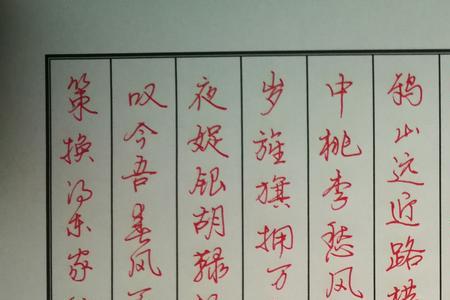 鸫山远近路横
中桃李愁风
岁旌旗拥万
夜娖银胡䩮
叹今吾春风
换得东家种
策